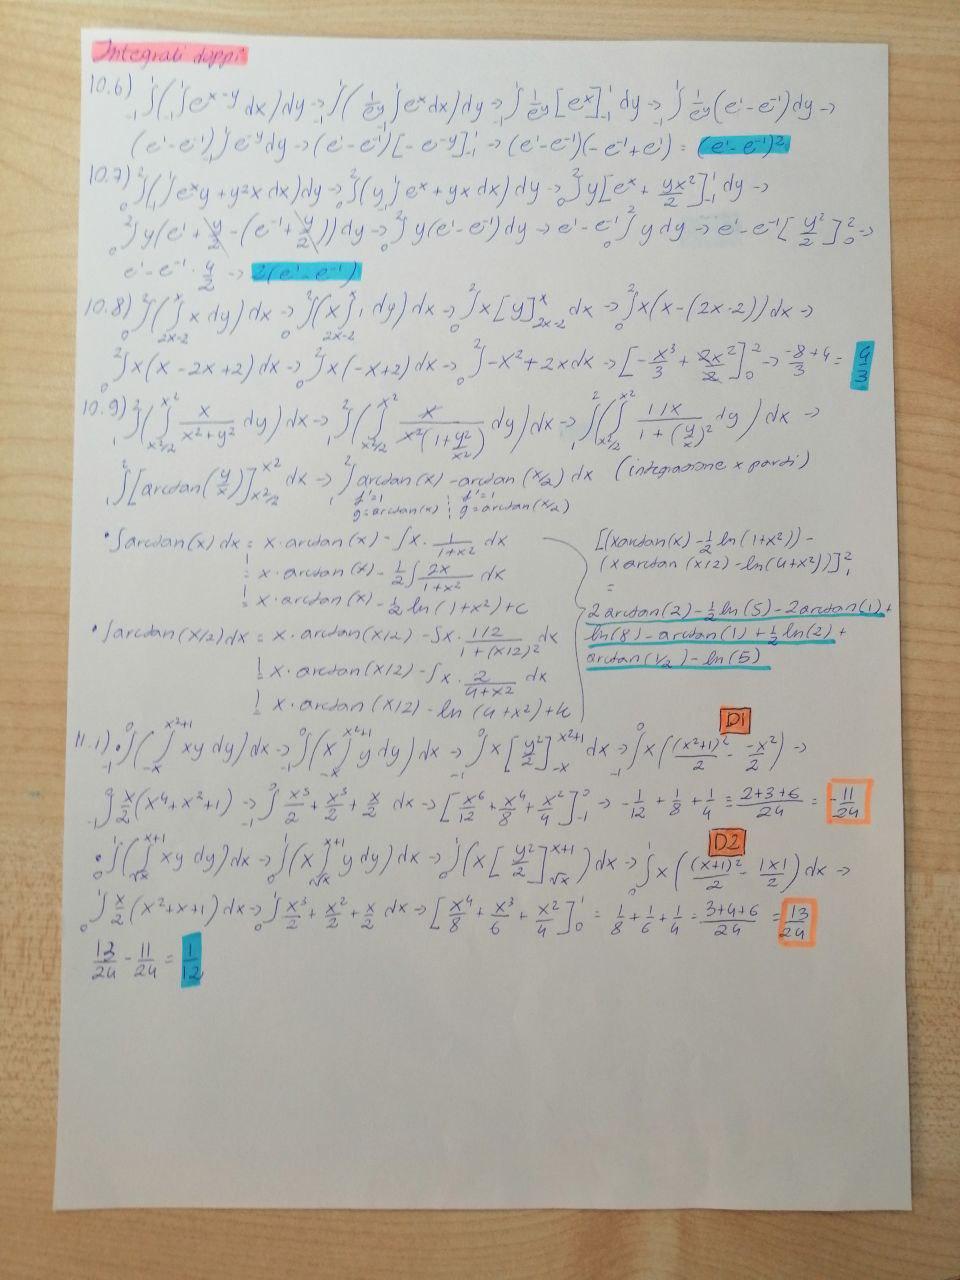 Integrali doppi
10.6) ₋₁∫¹(₋₁∫¹ e^(x-y) dx)dy → ₋₁∫¹(1/e^y ₋₁∫¹ e^x dx)dy → ₋₁∫¹ 1/e^y [e^x]₋₁¹ dy → ₋₁∫¹ 1/e^y (e¹-e⁻¹)dy →
(e¹-e⁻¹) ₋₁∫¹ e^-y dy → (e¹-e⁻¹)[-e^-y]₋₁¹ → (e¹-e⁻¹)(-e⁻¹+e¹) = (e¹-e⁻¹)²
10.7) ₀∫²(₋₁∫¹ e^x y + y²x dx)dy → ₀∫²(y ₋₁∫¹ e^x + yx dx) dy → ₀∫² y[e^x + yx²/2]₋₁¹ dy →
₀∫² y(e¹ + y/2 - (e⁻¹ + y/2)) dy → ₀∫² y(e¹-e⁻¹) dy → e¹-e⁻¹ ₀∫² y dy → e¹-e⁻¹ [y²/2]₀² →
e¹-e⁻¹ · 4/2 → 2(e¹-e⁻¹)
10.8) ₀∫²(∫_(2x-2)^x x dy) dx → ₀∫²(x ∫_(2x-2)^x 1 dy) dx → ₀∫² x [y]_(2x-2)^x dx → ₀∫² x(x-(2x-2)) dx →
₀∫² x(x-2x+2) dx → ₀∫² x(-x+2) dx → ₀∫² -x²+2x dx → [-x³/3 + 2x²/2]₀² → -8/3 + 4 = 4/3
10.9) ₁∫²(∫_(x²/2)^(x²) x/(x²+y²) dy) dx → ₁∫²(∫_(x²/2)^(x²) x/(x²(1+y²/x²)) dy) dx → ₁∫²(∫_(x²/2)^(x²) (1/x)/(1+(y/x)²) dy) dx →
₁∫² [arctan(y/x)]_(x²/2)^(x²) dx → ₁∫² arctan(x) - arctan(x/2) dx (integrazione x parti)
f'=1 f'=1
g=arctan(x) g=arctan(x/2)
• ∫arctan(x) dx = x·arctan(x) - ∫x· 1/(1+x²) dx
= x·arctan(x) - 1/2 ∫ 2x/(1+x²) dx
= x·arctan(x) - 1/2 ln(1+x²)+c
• ∫arctan(x/2)dx = x·arctan(x/2) - ∫x· (1/2)/(1+(x/2)²) dx
= x·arctan(x/2) - ∫x· 2/(4+x²) dx
= x·arctan(x/2) - ln(4+x²)+k
[(xarctan(x) - 1/2 ln(1+x²)) -
(xarctan(x/2) - ln(4+x²))]₁²
=
2arctan(2) - 1/2 ln(5) - 2arctan(1) +
ln(8) - arctan(1) + 1/2 ln(2) +
arctan(1/2) - ln(5)
D1
11.1) • ₋₁∫⁰(∫_(-x)^(x²+1) xy dy)dx → ₋₁∫⁰(x ∫_(-x)^(x²+1) y dy) dx → ₋₁∫⁰ x[y²/2]_(-x)^(x²+1) dx → ₋₁∫⁰ x((x²+1)²/2 - -x²/2) →
₋₁∫⁰ x/2 (x⁴+x²+1) → ₋₁∫⁰ x⁵/2 + x³/2 + x/2 dx → [x⁶/12 + x⁴/8 + x²/4]₋₁⁰ → -1/12 + 1/8 + 1/4 = (2+3+6)/24 = -11/24
D2
• ₀∫¹(∫_(√x)^(x+1) xy dy)dx → ₀∫¹(x ∫_(√x)^(x+1) y dy) dx → ₀∫¹(x [y²/2]_(√x)^(x+1)) dx → ₀∫¹ x((x+1)²/2 - |x|/2) dx →
₀∫¹ x/2 (x²+x+1) dx → ₀∫¹ x³/2 + x²/2 + x/2 dx → [x⁴/8 + x³/6 + x²/4]₀¹ = 1/8 + 1/6 + 1/4 = (3+4+6)/24 = 13/24
13/24 - 11/24 = 1/12